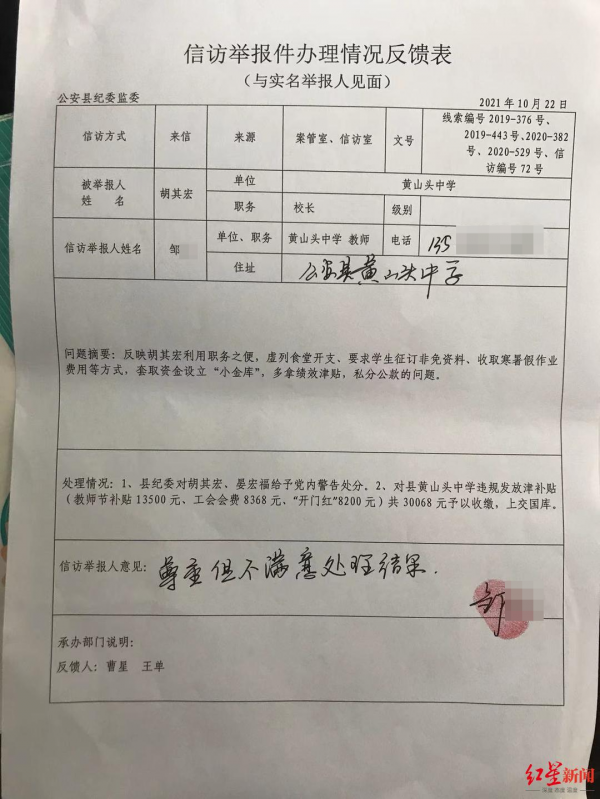 信访举报件办理情况反馈表
（与实名举报人见面）
公安县纪委监委 2021年10月22日
信访方式 来信 来源 案管室、信访室 文号 线索编号2019-376号、
2019-443号、2020-382
号、2020-529号、信
访编号72号
被举报人
姓 名 胡其宏 单位 黄山头中学
职务 校长 级别
信访举报人姓名 邹 单位、职务 黄山头中学 教师 电话 135
住址 公安县黄山头中学
问题摘要：反映胡其宏利用职务之便，虚列食堂开支、要求学生征订非免资料、收取寒暑假作业
费用等方式，套取资金设立“小金库”，多拿绩效津贴，私分公款的问题。
处理情况：1、县纪委对胡其宏、晏宏福给予党内警告处分。2、对县黄山头中学违规发放津补贴
（教师节补贴13500元、工会会费8368元、“开门红”8200元）共30068元予以收缴，上交国库。
信访举报人意见： 尊重但不满意处理结果.
邹
承办部门说明：
反馈人：曹星 王单
红星新闻
深度 态度 温度